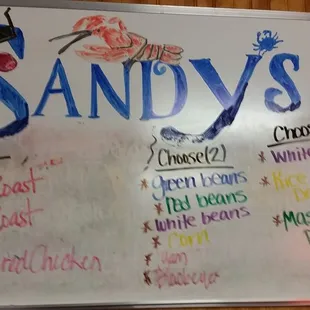 SANDY'S
Roast
Roast
Fried Chicken
Choose (2)
* Green beans
* Red beans
* White beans
* Corn
* Yam
* Blackeye
Choos
* White
* Rice
* Mas